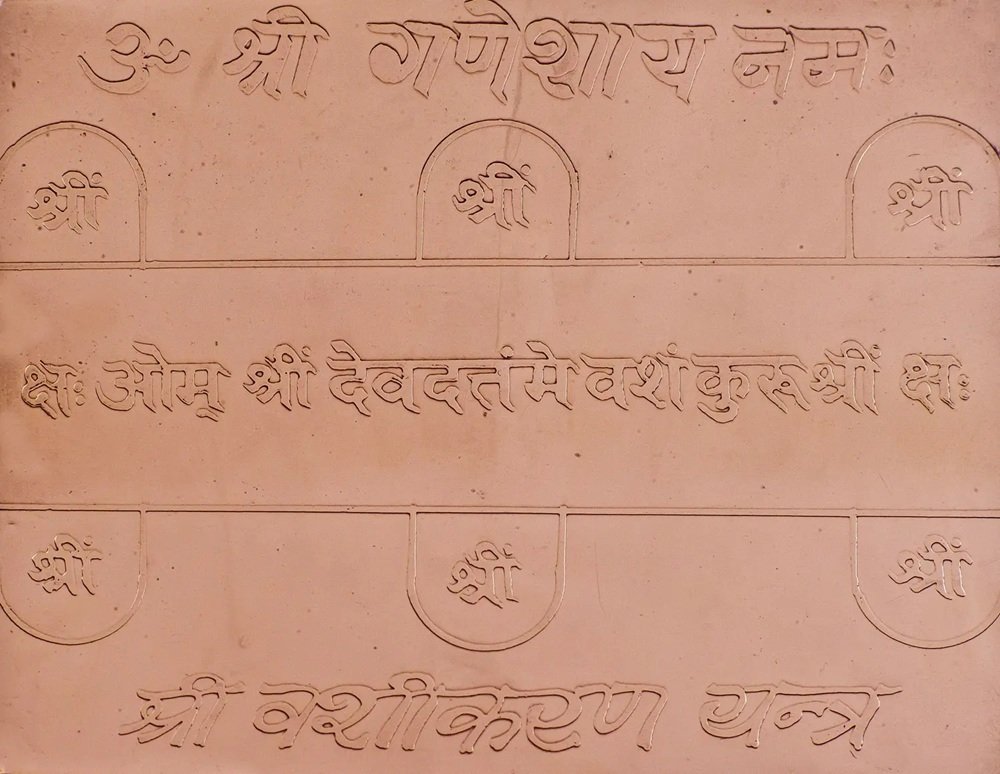 ॐ श्री गणेशाय नमः
श्रीं श्रीं श्रीं
क्षः ओम् श्रीं देवदत्तंमे वशं कुरू श्रीं क्षः
श्रीं श्रीं श्रीं
श्री वशीकरण यन्त्र